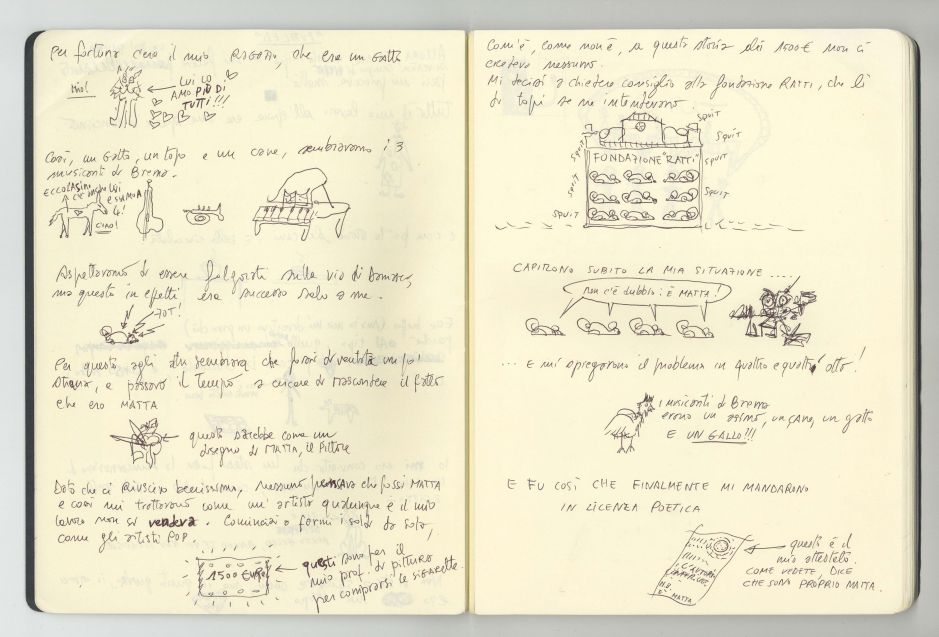 Per fortuna c'era il mio RAGAZZO, che era un Gatto
Mio!
LUI LO
AMO PIÙ DI
TUTTI!!!
Così, un Gatto, un topo e un cane, sembravamo i 3
musicanti di Brema.
ECCO L'ASINO
E SIAMO A
4!
CIAO!
Aspettavamo di essere folgorati sulla via di Damasco,
ma questo in effetti era successo solo a me.
ZOT!
Per questo agli altri sembrava che fossi diventata un po'
strana, e passavo il tempo a cercare di nascondere il fatto
che ero MATTA
questo sarebbe come un
disegno di MATTA, il pittore
Dato che ci riuscivo benissimo, nessuno pensava che fossi MATTA
e così mi trattavano come un'artista qualunque e il mio
lavoro non si vendeva. Cominciai a farmi i soldi da sola,
come gli artisti POP.
1500 EURO
questi sono per il
mio prof. di pittura
per comprarsi le sigarette.
Com'è, come non è, a questa storia dei 1500€ non ci
credeva nessuno.
Mi decisi a chiedere consiglio alla fondazione RATTI, che lì
di topi se ne intendevano.
SQUIT
SQUIT
SQUIT
SQUIT
SQUIT
SQUIT
SQUIT
SQUIT
FONDAZIONE "RATTI"
CAPIRONO SUBITO LA MIA SITUAZIONE....
non c'è dubbio: È MATTA!
... E mi spiegarono il problema in quattro e quattro otto!
i musicanti di Brema
erano un asino, un cane, un gatto
E UN GALLO!!!
E FU COSÌ CHE FINALMENTE MI MANDARONO
IN LICENZA POETICA
L'AUTORE
N.B.
È MATTA
questo è il
mio attestato.
COME VEDETE, DICE
CHE SONO PROPRIO MATTA.